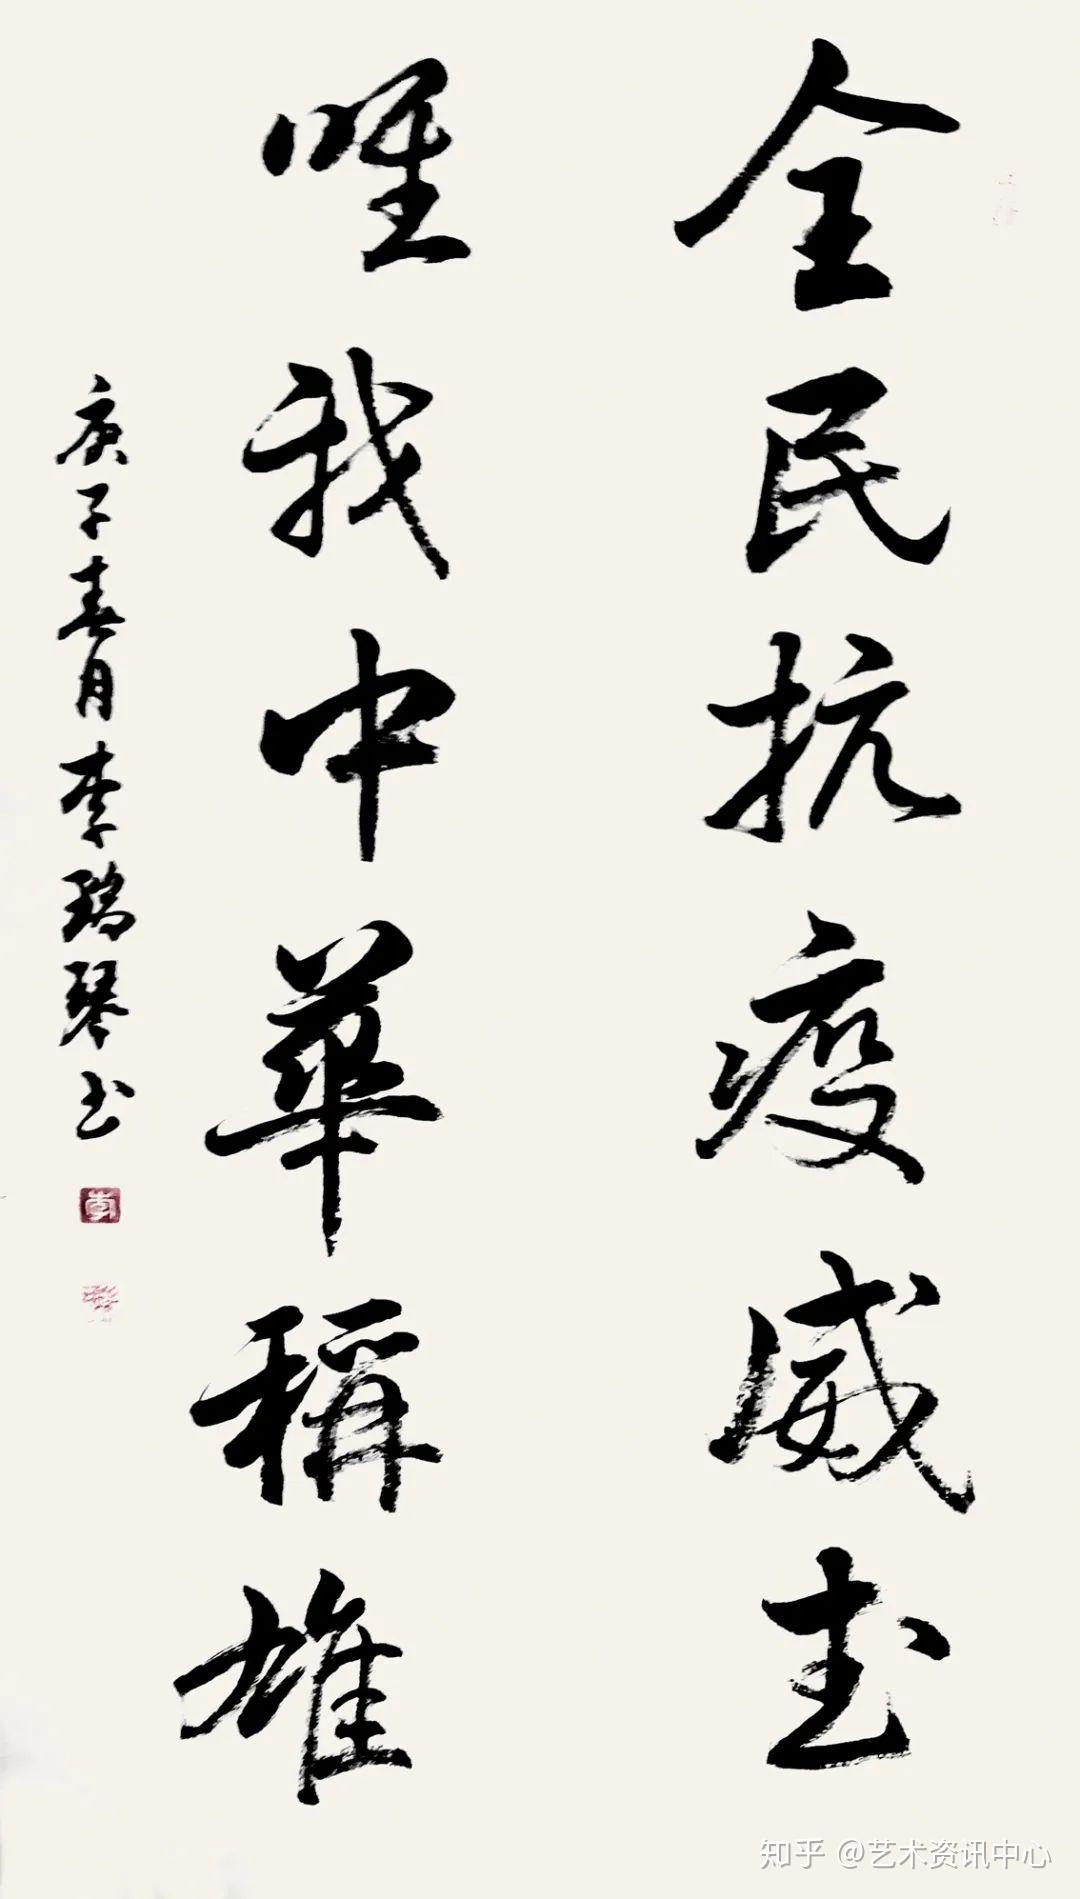 全民抗疫威武
唯我中華稱雄
庚子春月李瑞琴书
李
知乎 @艺术资讯中心